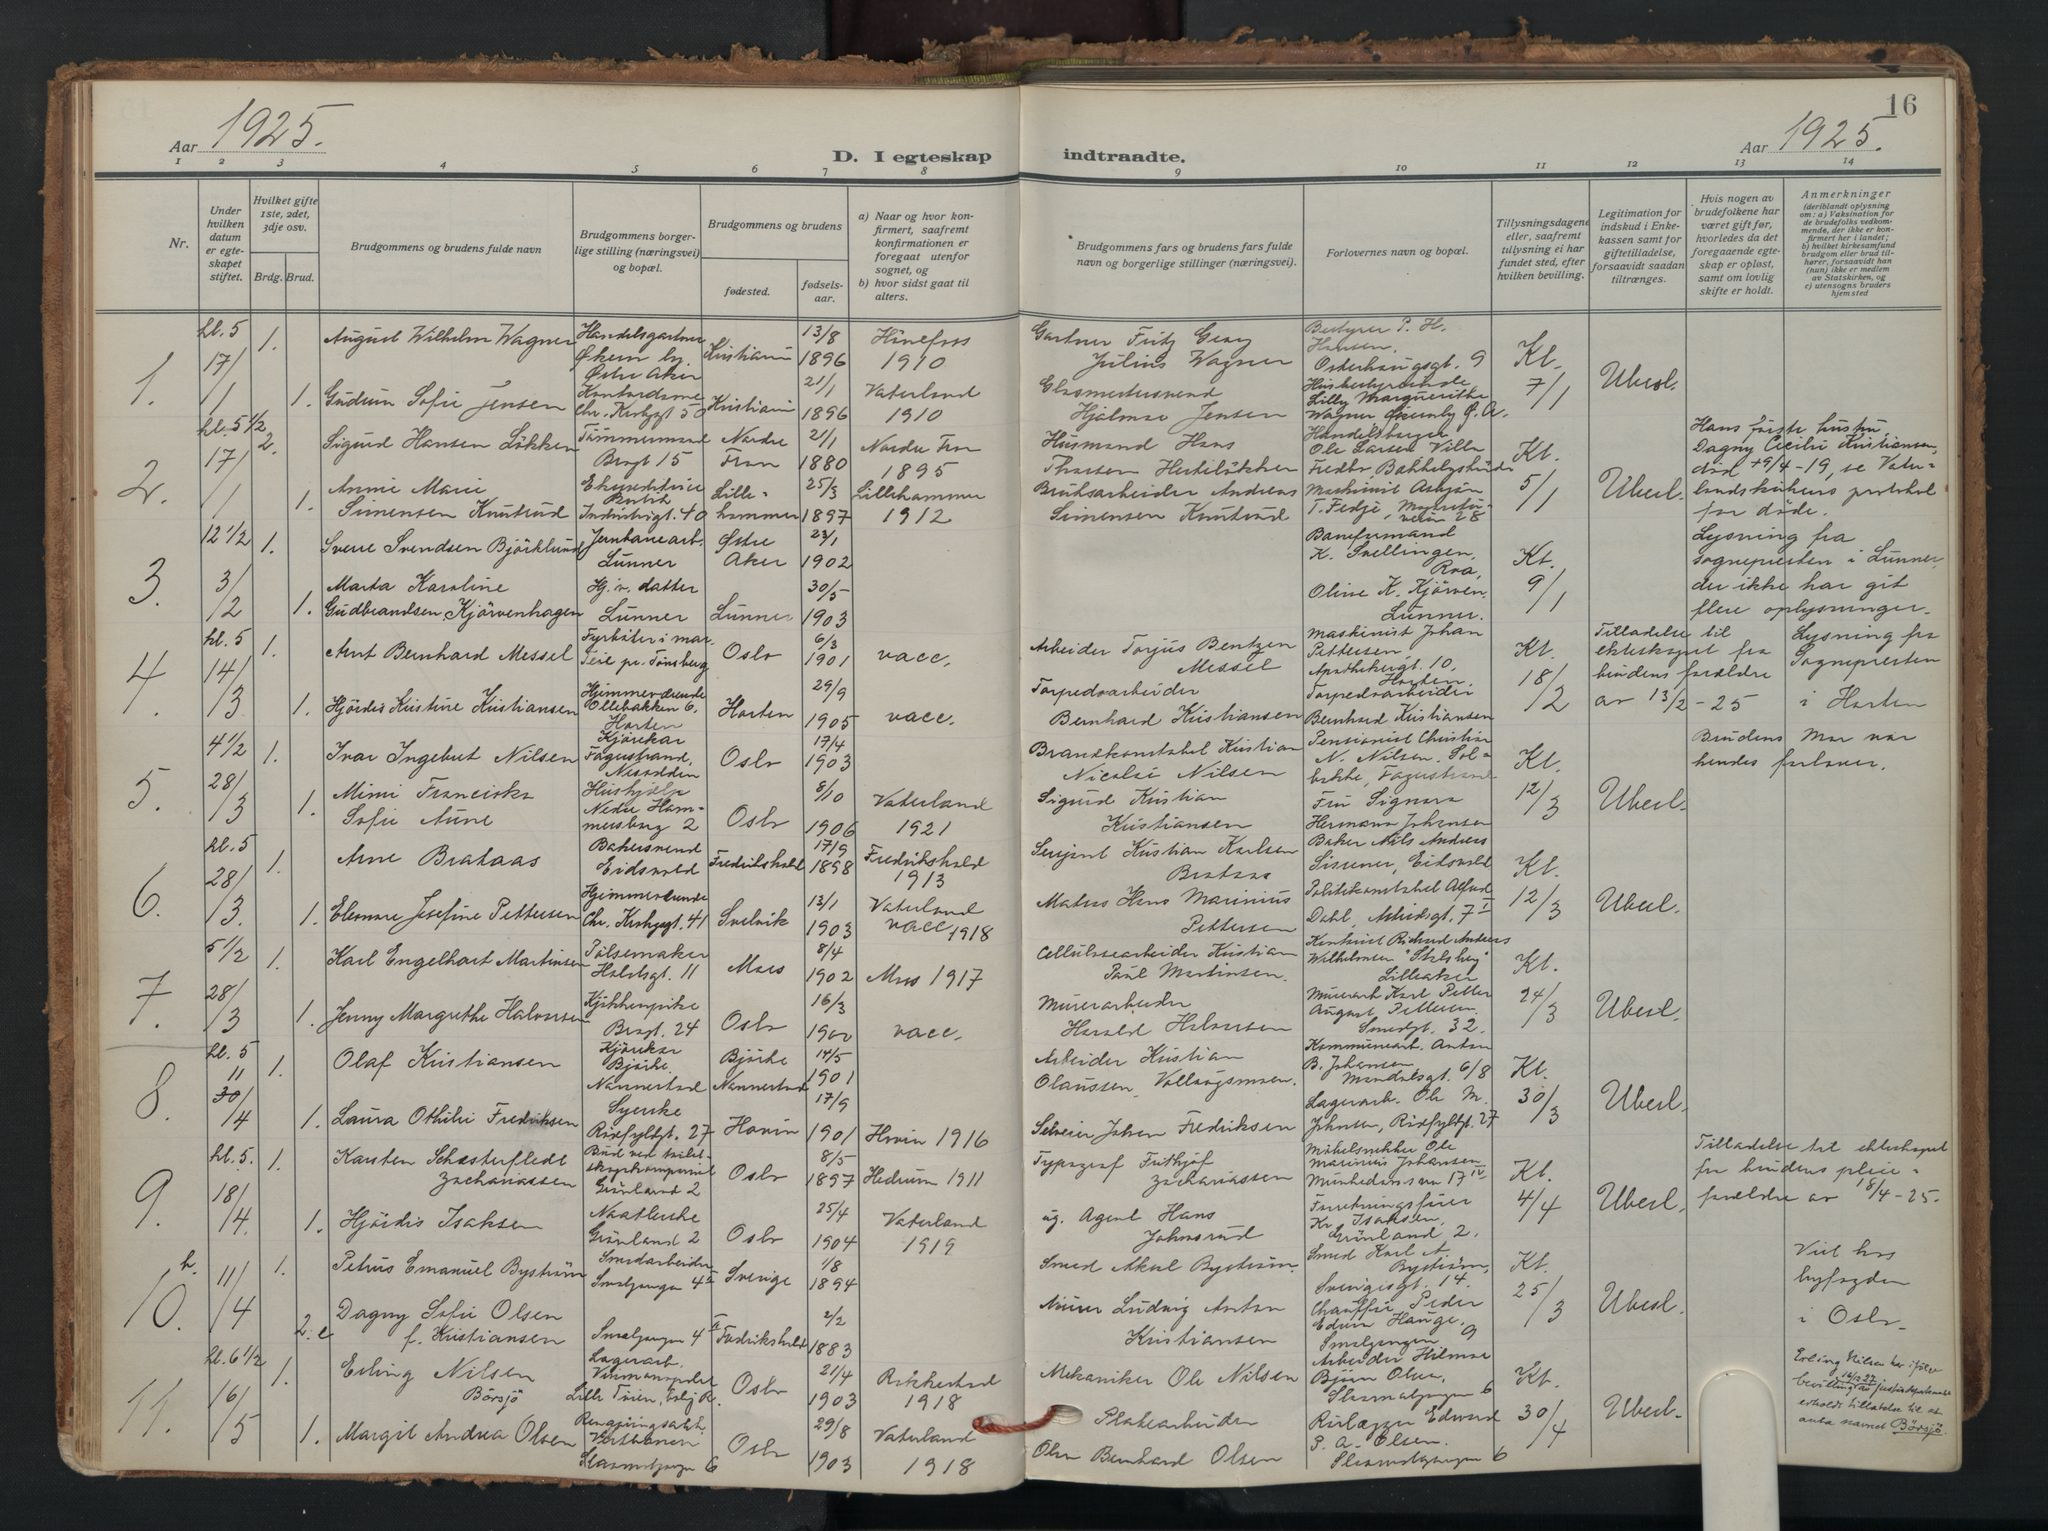 16
Aar 1925.
D. I egteskap
indtraadte.
Aar 1925.
1 2 3 4 5 6 7 8 9 10 11 12 13 14
Nr.
Under hvilken datum er egteskapet stiftet.
Hvilket gifte 1ste, 2det, 3dje osv.
Brdg. Brud.
Brudgommens og brudens fulde navn
Brudgommens borgerlige stilling (næringsvei) og bopæl.
Brudgommens og brudens
fødested.
fødselsaar.
a) Naar og hvor konfirmert, saafremt konfirmationen er foregaat utenfor sognet, og
b) hvor sidst gaat til alters.
Brudgommens fars og brudens fars fulde navn og borgerlige stillinger (næringsvei).
Forlovernes navn og bopæl.
Tillysningsdagene eller, saafremt tillysning ei har fundet sted, efter hvilken bevilling.
Legitimation for indskud i Enkekassen samt for giftetilladelse, forsaavidt saadan tiltrænges.
Hvis nogen av brudefolkene har været gift før, hvorledes da det foregaaende egteskap er opløst, samt om lovlig skifte er holdt.
Anmerkninger
(deriblandt oplysning om: a) Vaksination for de brudefolks vedkommende, der ikke er konfirmert her i landet; b) hvilket kirkesamfund brudgom eller brud tilhører, forsaavidt han (hun) ikke er medlem av Statskirken, og c) utensogns bruders hjemsted
1.
kl. 5
17/1
1.
August Wilhelm Wagner
Handelsgartner
Økern
Østre Aker
Kristiania
13/8 1896
Hönefoss 1910
Gartner Fritz Georg Julius Wagner
Bestyrer P. H. Hansen,
Osterhaugsgt. 9
Kl. 7/1
Uberl.
1.
Gudrun Sofie Jensen
Kontordame
Chr. Krohgsgt 50
Kristiania
21/1 1896
Vaterland 1910
Glasmestersvend
Hjalmar Jensen
Lilly Margrethe
Wagner
2.
kl. 5 1/2
17/1
2.
Sigurd Hansen Løkken
Tømmermand
Brogt 15
Nordre Fron
21/1 1880
Nordre Fron 1895
Husmand Hans
Thorsen
Ole Larsen
Kl. 5/1
Uberl.
Hans første hustru
Dagny Cecilie Kristiansen,
død 19/4-19, se Vaterlandskirkens protokol
for døde.
1.
Anne Marie
Simensen Knutsrud
Industrigt. 40
Lillehammer
25/3 1897
Lillehammer 1912
Bruksarbeider Andreas
Simensen Knutsrud
Maskinist
3.
12 1/2
3/2
1.
Sverre Svendsen Björklund
Jernbanearb.
Lunner
Østre Aker
23/1 1902
Banformand
K. Svellingen,
Roa,
Kl. 9/1
Lysning fra
sognepresten i Lunner,
der ikke har git
flere oplysninger.
1.
Marta Karoline
Gudbrandsen Kjörvenhagen
Hj. v. datter
Lunner
Lunner
30/5 1903
Oline K. Kjörven,
Lunner.
4.
kl. 5
14/3
1.
Arnt Bernhard Messel
Fyrbøter i mar.
Teie pr. Tønsberg
Oslo
6/3 1901
vacc.
Arbeider Torjus Bentzen
Messel
Maskinist Johan
Pettersen,
Apothekergt. 10,
Horten.
Kl. 18/2
Tilladelse til
ekteskapet fra
brudens forældre
av 13/2-25
Lysning fra
Sognepresten
i Horten
1.
Hjördis Kristine Kristiansen
Hjemmeværende
Ollebakken 6,
Horten
Horten
29/9 1905
vacc.
Torpedoarbeider
Bernhard Kristiansen
Torpedoarbeider
Bernhard Kristiansen
5.
4 1/2
28/3
1.
Ivar Ingebret Nilsen
Kjørekar
Fagerstrand,
Nesodden
Oslo
17/4 1903
Brandkonstabel Kristian
Nicolai Nilsen
Pensionist Christian
N. Nilsen,
Fagerstrand
Kl. 12/3
Uberl.
Brudens mor var
hendes forlover.
1.
Mimi Franciska
Sofie Aune
Hushjelp
Nedre Hammersborg 2
Oslo
8/10 1906
Vaterland 1921
Sigurd Kristian
Kristiansen
Fru Signora
Hermana Johansen
6.
kl. 5
28/3
1.
Arne Brataas
Bakersvend
Eidsvold
Fredrikshald
17/9 1898
Fredrikshald 1913
Serjant Kristian Karlsen
Brataas
Baker Nils Andreas
Eidsvold
Kl. 12/3
Uberl.
1.
Eleonore Josefine Pettersen
Hjemmeværende
Chr. Krohgsgt. 41
Svelvik
13/1 1903
Vaterland
vacc 1918
Matros Hans Marinius
Pettersen
Politikonstabel Alfred
Dahl, Arbeidsgt. 7 I
7.
5 1/2
28/3
1.
Karl Engelhart Martinsen
Pølsemaker
11
Moss
8/4 1902
Moss 1917
Cellulosearbeider Kristian
Paul Martinsen
Kontorist Richard Anders
Wilhelmsen
Lilleaker
Kl. 24/3
Uberl.
1.
Jenny Margrethe Halvorsen
Kjøkkenpike
Brogt. 24
Oslo
16/3 1900
vacc.
Murerarbeider
Harald Halvorsen
Murerarb Karl Petter
August Pettersen
Smedgt. 32.
8.
kl. 5
11
30/4
1.
Olaf Kristiansen
Kjørekar
Bjerke,
Nannestad
Bjerke
Nannestad
14/5 1901
Arbeider Kristian
Olaussen
Kommunearb. Anton
B. Johansen
Mandalsgt. 6/8
Kl. 30/3
Uberl.
1.
Laura Othilie Fredriksen
Syerske
Ridfyllgt. 27
Hovin
17/9 1901
Hovin 1916
Selveier Johan Fredriksen
Lagerarb. Ole M.
Johnsen, Rosfyllgt. 27
9.
kl. 5.
18/4
1.
Karsten
Zachariassen
Bud ved
Grønland 2
Oslo
8/5 1897
Hedrum 1911
Typograf Frithjof
Zachariassen
Møbelsnekker Ole
Marinius Johansen
17 IV
Kl. 4/4
Uberl.
Tilladelse til ekteskapet
fra brudens pleieforældre av 18/4-25.
1.
Hjördis Isaksen
Grønland 2
Oslo
25/4 1904
Vaterland 1919
ug. Agent Hans
Johnsrud
Forretningsfører
Kr. Isaksen,
Grønland 2.
10.
11/4
1.
Petrus Emanuel Byström
Smedarbeider
Smalgangen 4 II
Sverige
1/8 1894
Smed Axel Byström
Smed Karl A.
Byström,
Sverigesgt. 14.
Kl. 25/3
Uberl.
Viet hos
byfogden
i Oslo
2. e
Dagny Sofie Olsen
f. Kristiansen
Smalgangen 4 II
Fredrikshald
2/2 1883
Murer Ludvig Anton
Kristiansen
Chauffør Peder
Edvin Hauge,
Smalgangen 9
11.
kl. 6 1/2
16/5
1.
Erling Nilsen
Börsjö
Lagerarb.
Lille Tøien
Oslo
21/4 1903
Rakkestad 1918
Mekaniker Ole Nilsen
Arbeider Hilmar
Bjørn Olsen,
6
Kl. 30/4
Uberl.
Erling Nilsen har ifølge
bevilling av justisdepartementet
erholdt tillatelse til at
anta navnet Börsjö.
1.
Margit Andrea Olsen
Rengjøringsarb.
6
Oslo
29/8 1903
Vaterland 1918
Platearbeider
Olav Bernhard Olsen
Rørlægger Edvard
P. A. Olsen.
6